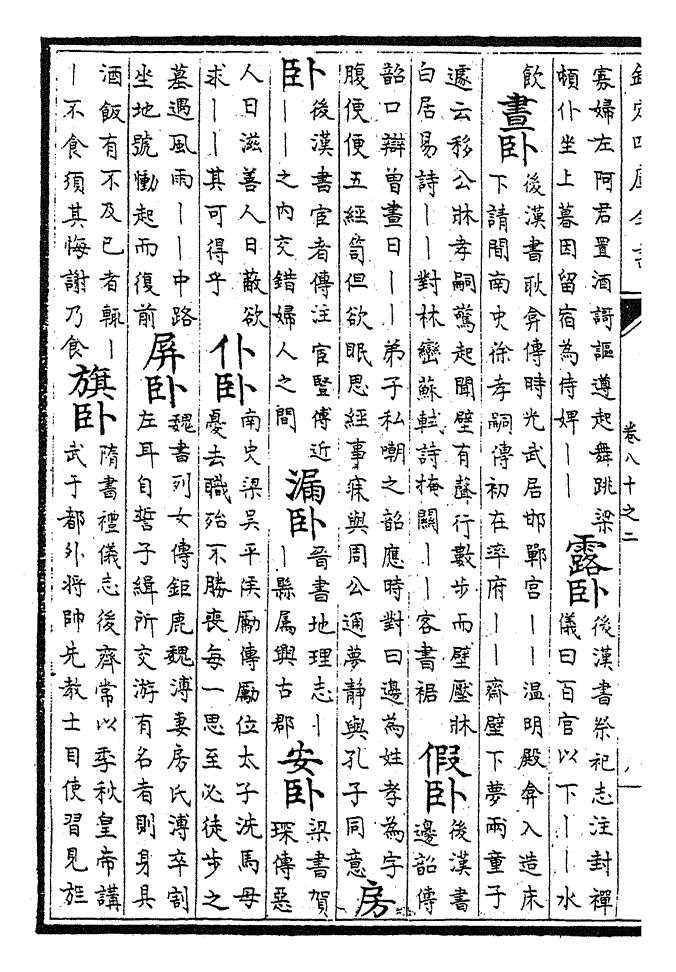 欽定四庫全書
卷八十之二
寡婦左阿君置酒謌謳遵起舞跳梁
頓仆坐上暮因留宿為侍婢丨丨
露卧
後漢書祭祀志注封禪
儀曰百官以下丨丨水
飲
晝卧
後漢書耿弇傳時光武居邯鄲宮丨丨温明殿弇入造床
下請間南史徐孝嗣傳初在率府丨丨齋壁下夢兩童子
遽云移公牀孝嗣驚起聞壁有聲行數步而壁壓牀
白居易詩丨丨對林巒蘇軾詩掩關丨丨客書裾
假卧
後漢書
邊韶傳
韶口辯曽晝日丨丨弟子私嘲之韶應時對曰邊為姓孝為字
腹便便五經笥但欲眠思經事寐與周公通夢靜與孔子同意
房
卧
後漢書宦者傳注宦豎傅近
丨丨之内交錯婦人之間
漏卧
晉書地理志丨
丨縣属興古郡
安卧
梁書賀
琛傳惡
人日滋善人日蔽欲
求丨丨其可得乎
仆卧
南史梁吴平侯勵傳勵位太子洗馬母
憂去職殆不勝喪每一思至必徒步之
墓遇風雨丨丨中路
坐地號慟起而復前
屏卧
魏書列女傳鉅鹿魏溥妻房氏溥卒割
左耳自誓子緝所交游有名者則身具
酒飯有不及已者輒丨
丨不食須其悔謝乃食
旗卧
隋書禮儀志後齊常以季秋皇帝講
武于都外将帥先教士目使習見旌